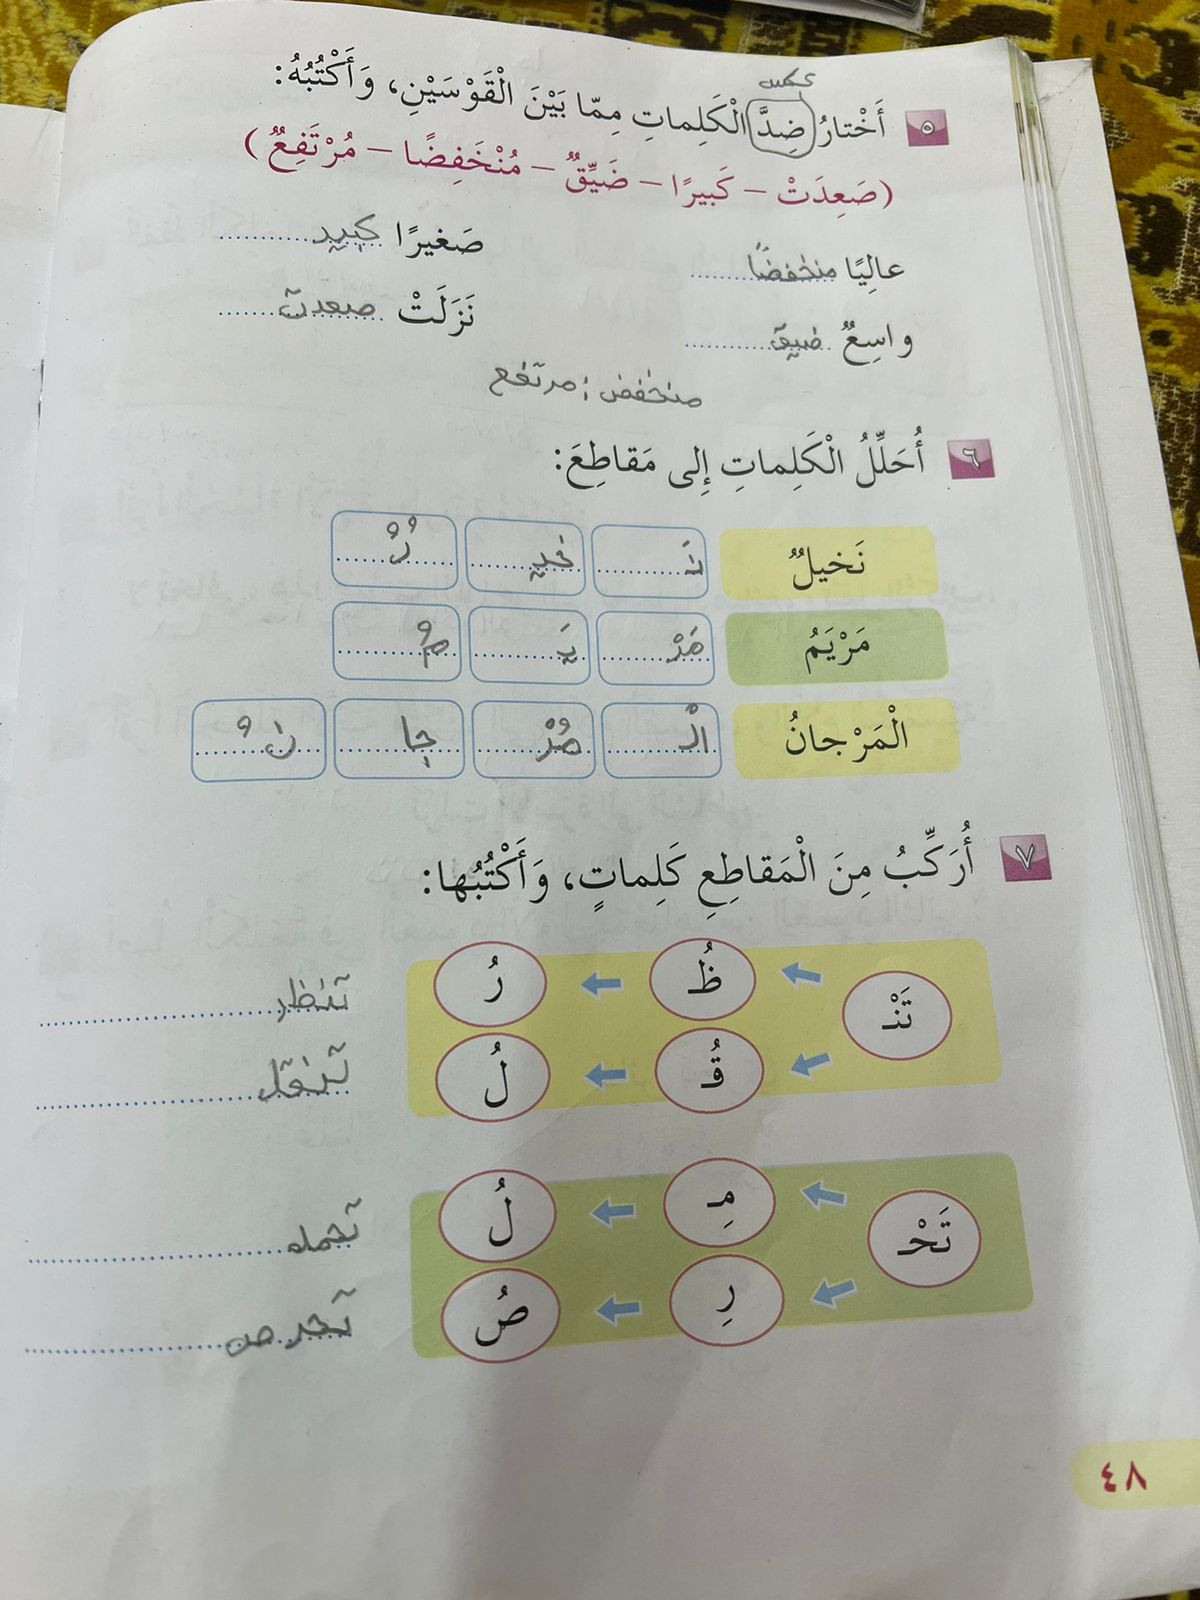 عكس
٥ أَخْتارُ ضِدَّ الْكَلِماتِ مِمّا بَيْنَ الْقَوْسَيْنِ، وَأَكْتُبُهُ:
(صَعِدَتْ – كَبيرًا – ضَيِّقٌ – مُنْخَفِضًا – مُرْتَفِعٌ)
عالِيًا منخفضًا صَغيرًا كبير
واسِعٌ ضيق نَزَلَتْ صعدت
منخفض : مرتفع
٦ أُحَلِّلُ الْكَلِماتِ إِلى مَقاطِعَ:
نَخيلٌ نَـ خيـ لٌ
مَرْيَمُ مَرْ يَـ مُ
الْمَرْجانُ الْـ مَرْ جا نُ
٧ أُرَكِّبُ مِنَ الْمَقاطِعِ كَلِماتٍ، وَأَكْتُبُها:
تَنْـ ظُ رُ تنظر
قُـ لُ تنقل
تَحْـ مِـ لُ تحمل
رِ صُ تحرص
٤٨